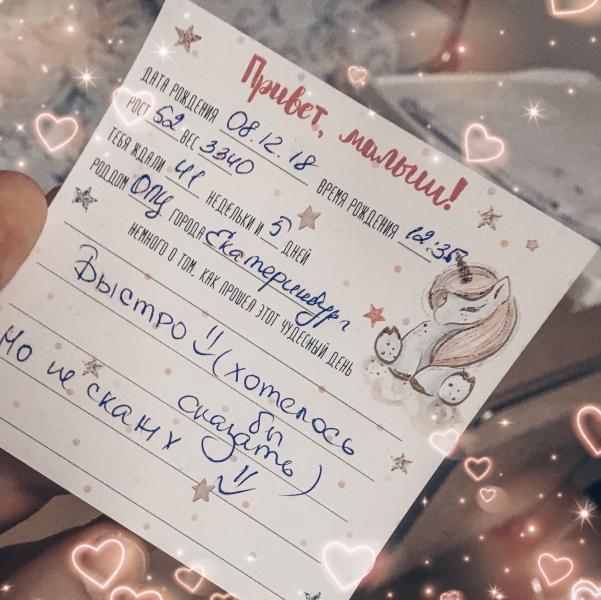 Привет, малыш!
ДАТА РОЖДЕНИЯ 08.12.18 ВРЕМЯ РОЖДЕНИЯ 12:35
РОСТ 52 ВЕС 3340
ТЕБЯ ЖДАЛИ 41 НЕДЕЛЬКИ И 5 ДНЕЙ
РОДДОМ ОПЦ ГОРОДА Екатеринбург
НЕМНОГО О ТОМ, КАК ПРОШЕЛ ЭТОТ ЧУДЕСНЫЙ ДЕНЬ
Быстро (хотелось
бы
сказать)
Но не скажу